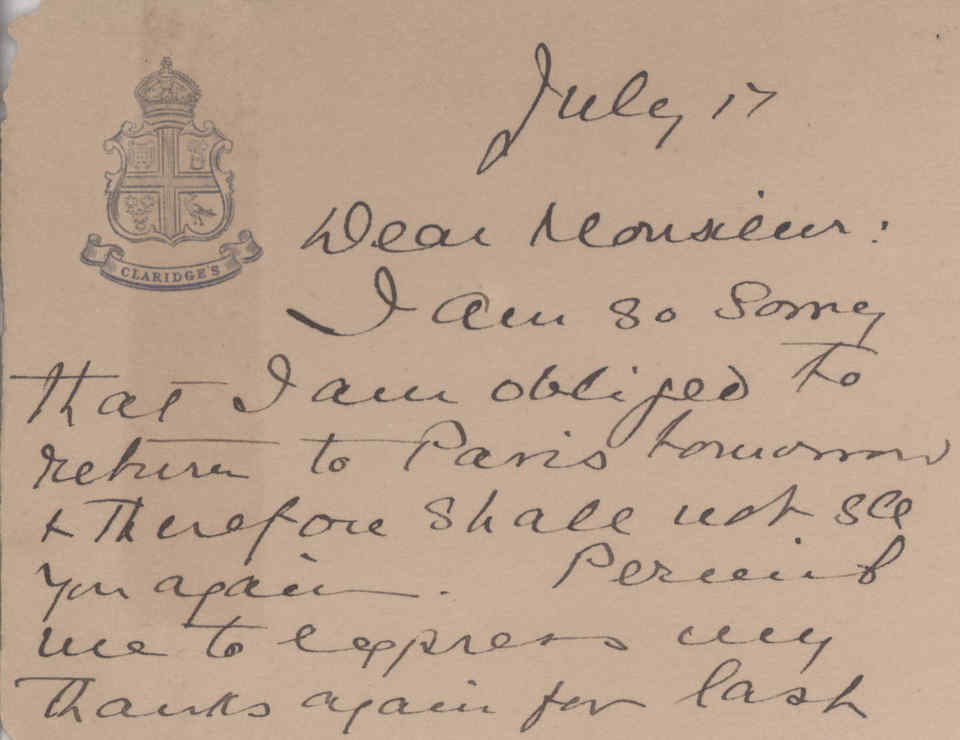 July 17
CLARIDGE'S
Dear Monsieur:
I am so sorry
that I am obliged to
return to Paris tomorrow
& therefore shall not see
you again. Permit
me to express my
thanks again for last